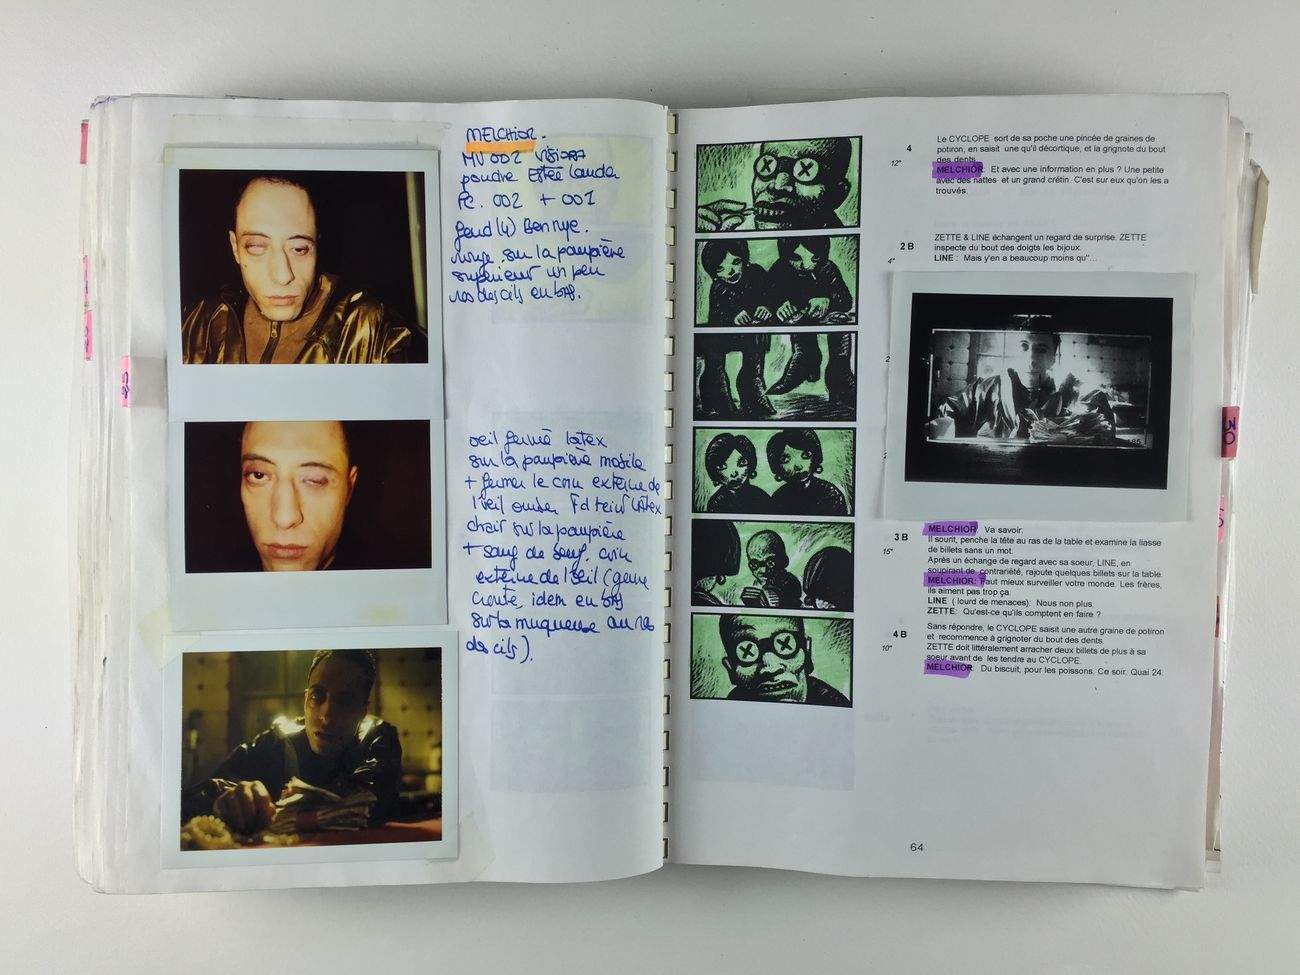 MELCHIOR.
MV 002 VISIORA
poudre Estée Lauder
Pc. 002 + 001
fond (4) Ben Nye.
rouge sur la paupière
supérieur un peu
ras des cils en bas.
oeil fermé latex
sur la paupière mobile
+ fermer le coin externe de
l'oeil ouster Fd teint Latex
chair sur la paupière
+ sang de coin
externe de l'oeil (genre
croute, idem en bas
sur la muqueuse au ras
des cils).
4
12"
Le CYCLOPE sort de sa poche une pincée de graines de
potiron, en saisit une qu'il décortique, et la grignote du bout
des dents.
MELCHIOR: Et avec une information en plus ? Une petite
avec des nattes et un grand crétin. C'est sur eux qu'on les a
trouvés.
2 B
4"
ZETTE & LINE échangent un regard de surprise. ZETTE
inspecte du bout des doigts les bijoux.
LINE : Mais y'en a beaucoup moins qu'...
2
2
185
3 B
15"
MELCHIOR: Va savoir.
Il sourit, penche la tête au ras de la table et examine la liasse
de billets sans un mot.
Après un échange de regard avec sa soeur, LINE, en
soupirant de contrariété, rajoute quelques billets sur la table.
MELCHIOR: Faut mieux surveiller votre monde. Les frères,
ils aiment pas trop ça.
LINE ( lourd de menaces): Nous non plus.
ZETTE: Qu'est-ce qu'ils comptent en faire ?
4 B
10"
Sans répondre, le CYCLOPE saisit une autre graine de potiron
et recommence à grignoter du bout des dents.
ZETTE doit littéralement arracher deux billets de plus à sa
soeur avant de les tendre au CYCLOPE.
MELCHIOR: Du biscuit, pour les poissons. Ce soir. Quai 24.
64
30